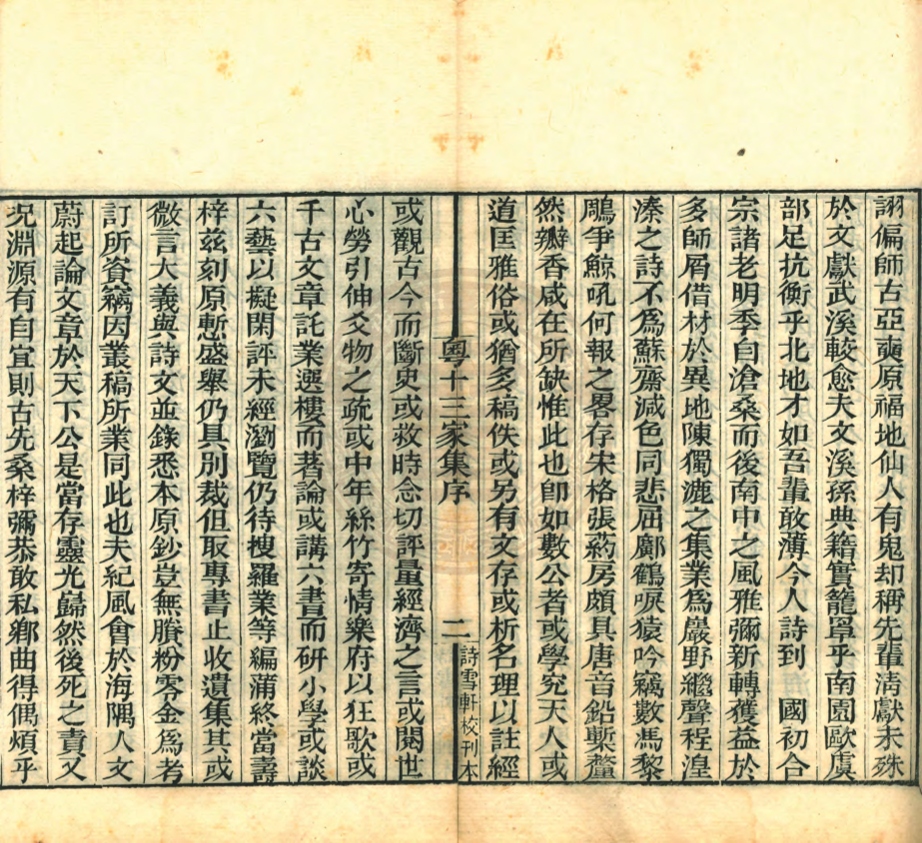 詡偏師古亞奭原福地仙人有鬼却稱先輩淸獻未殊
於文獻武溪較愈夫文溪孫典籍實籠罩乎南園歐虞
部足抗衡乎北地才如吾輩敢薄今人詩到　國初合
宗諸老明季自滄桑而後南中之風雅彌新轉獲益於
多師屑借材於異地陳獨漉之集業爲嚴野繼聲程湟
溱之詩不爲蘇齋減色同悲屈鄺鶴唳猿吟竊數馮黎
鵰爭鯨吼何報之畧存宋格張葯房頗具唐音鉛槧釐
然瓣香咸在所缺惟此也卽如數公者或學究天人或
道匡雅俗或猶多稿佚或另有文存或析名理以註經
粵十三家集序　二　詩雪軒校刊本
或觀古今而斷史或救時念切評量經濟之言或閱世
心勞引伸爻物之疏或中年絲竹寄情樂府以狂歌或
千古文章託業選樓而著論或講六書而研小學或談
六藝以擬閑評未經瀏覽仍待搜羅業等編蒲終當壽
梓兹刻原慙盛舉仍具別裁但取專書止收遺集其或
微言大義與詩文並錄悉本原鈔豈無賸粉零金爲考
訂所資竊因叢稿所業同此也夫紀風會於海隅人文
蔚起論文章於天下公是當存靈光巋然後死之責又
况淵源有自宜則古先桑梓彌恭敢私鄕曲得偶煩乎